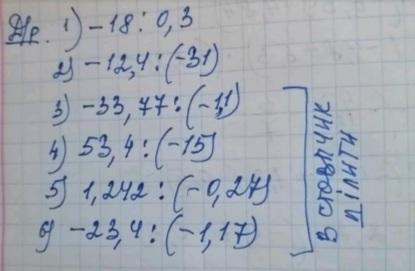 Д/р. 1) -18 : 0,3
2) -12,4 : (-31)
3) -33,77 : (-1,1)
4) 53,4 : (-15)
5) 1,242 : (-0,27)
6) -23,4 : (-1,17)
В стовпчик
ділити